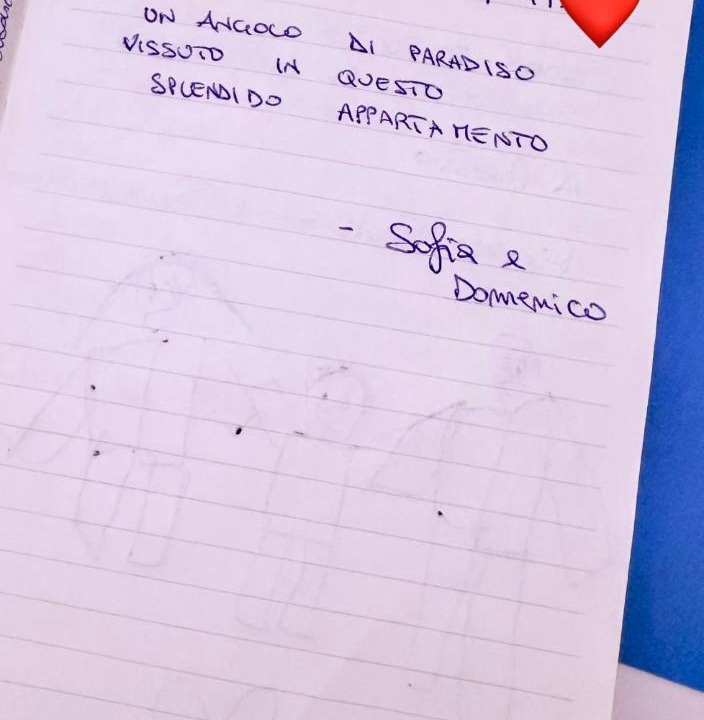 UN ANGOLO DI PARADISO
VISSUTO IN QUESTO
SPLENDIDO APPARTAMENTO
- Sofia e
Domenico